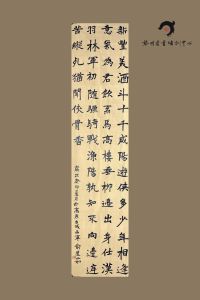 新豐美酒斗十千咸陽遊俠多少年相逢
意氣為君飲繫馬高樓垂柳邊出身仕漢
羽林軍初隨驃騎戰漁陽孰知不向邊庭
苦縱死猶聞俠骨香